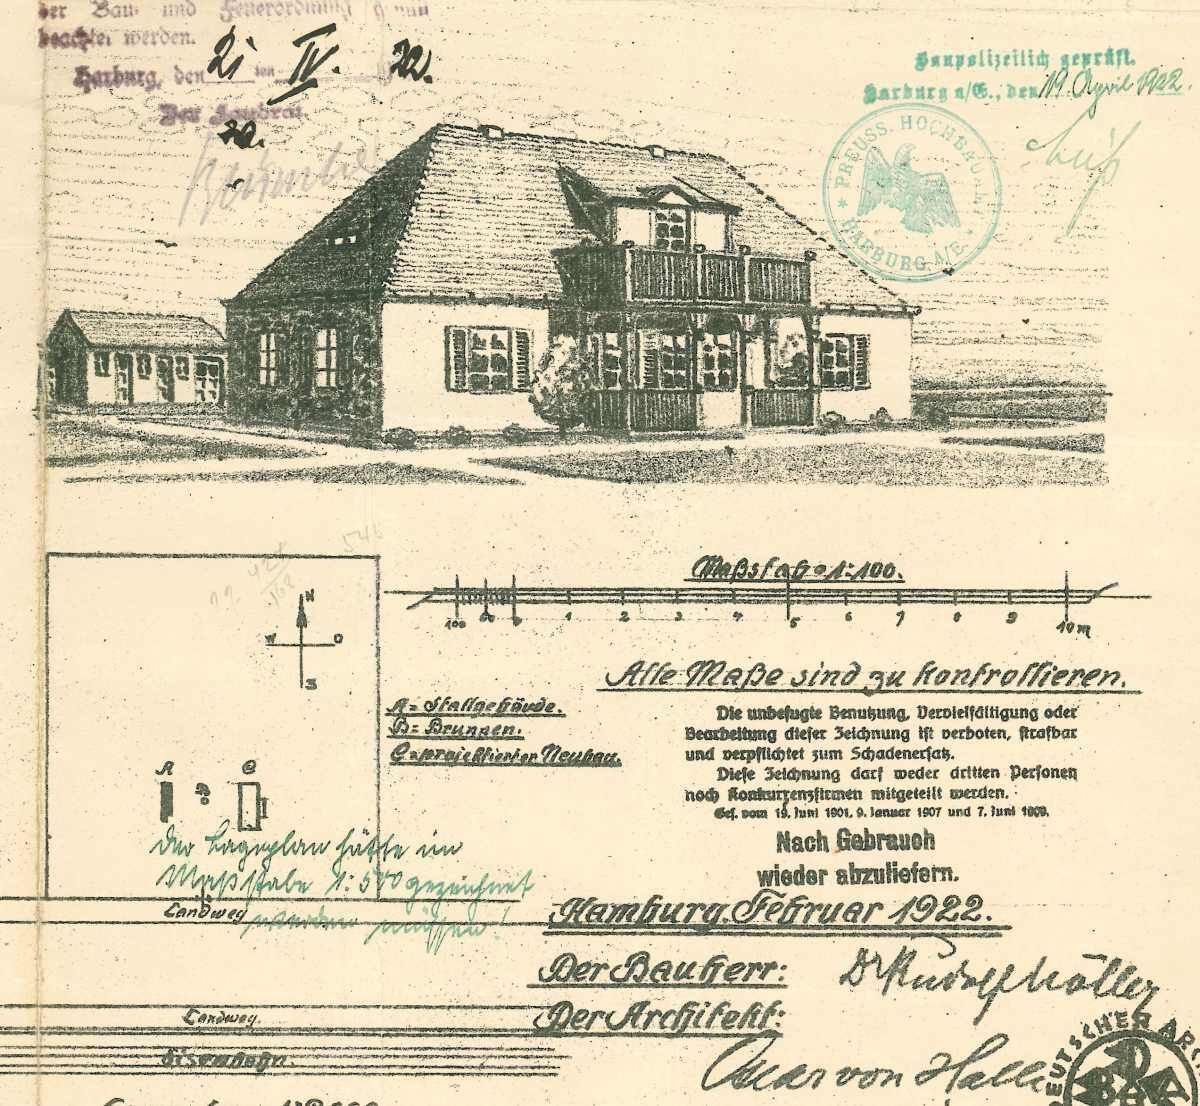 der Bau- und Feuerordnung genau
beachtet werden.
Harburg, den 21 ten IV. 1922.
Der Landrat
Baupolizeilich geprüft.
Harburg a/E., den 19 April 1922.
* PREUSS. HOCHBAU
HARBURG A/E.
546
N
W O
S
Maßstab = 1:100.
100 50 0 1 2 3 4 5 6 7 8 9 10 m
Alle Maße sind zu kontrollieren.
A = Stallgebäude.
B = Brunnen.
C = projektierter Neubau.
Die unbefugte Benutzung, Vervielfältigung oder
Bearbeitung dieser Zeichnung ist verboten, strafbar
und verpflichtet zum Schadenersatz.
Diese Zeichnung darf weder dritten Personen
noch Konkurrenzfirmen mitgeteilt werden.
Ges. vom 19. Juni 1901, 9. Januar 1907 und 7. Juni 1909.
A B C
Nach Gebrauch
wieder abzuliefern.
Der Lageplan hätte im
Maßstabe 1:500 gezeichnet
werden müssen!
Landweg
Hamburg, Februar 1922.
Der Bauherr: Dr Rudolf Möller
Der Architekt:
Oscar von Halle
Landweg.
Eisenbahn.
DEUTSCHER ARCH
BDA